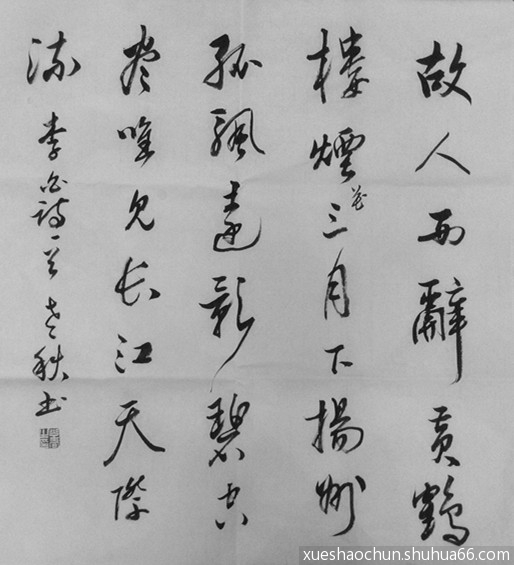 故人西辭黃鶴
樓煙花三月下揚州
孤颿遠影碧空
盡唯見长江天際
流 李白詩一首 老书
xueshaochun.shuhua66.com